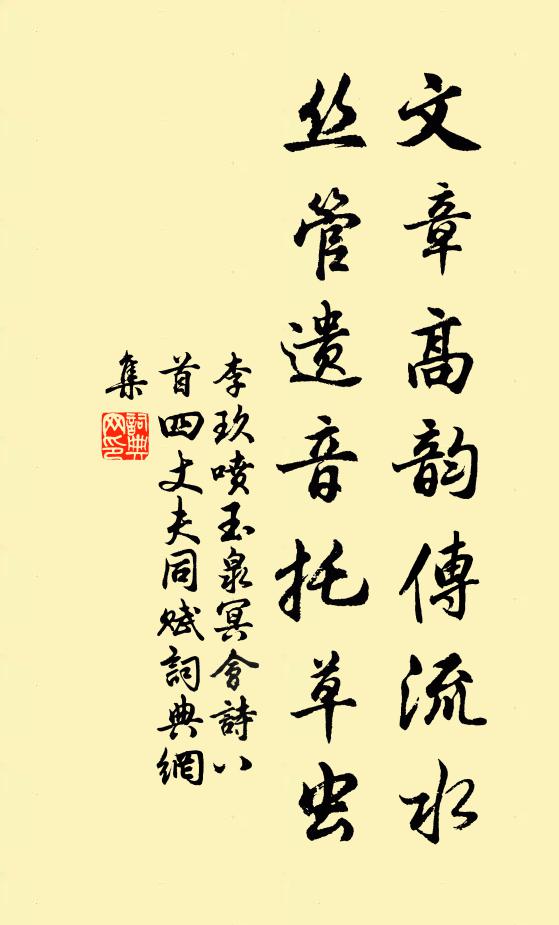 文章高韵傳流水
丝管遗音托草虫
李玖喷玉泉冥會詩八
首四丈夫同赋詞典網
集
詞典网印